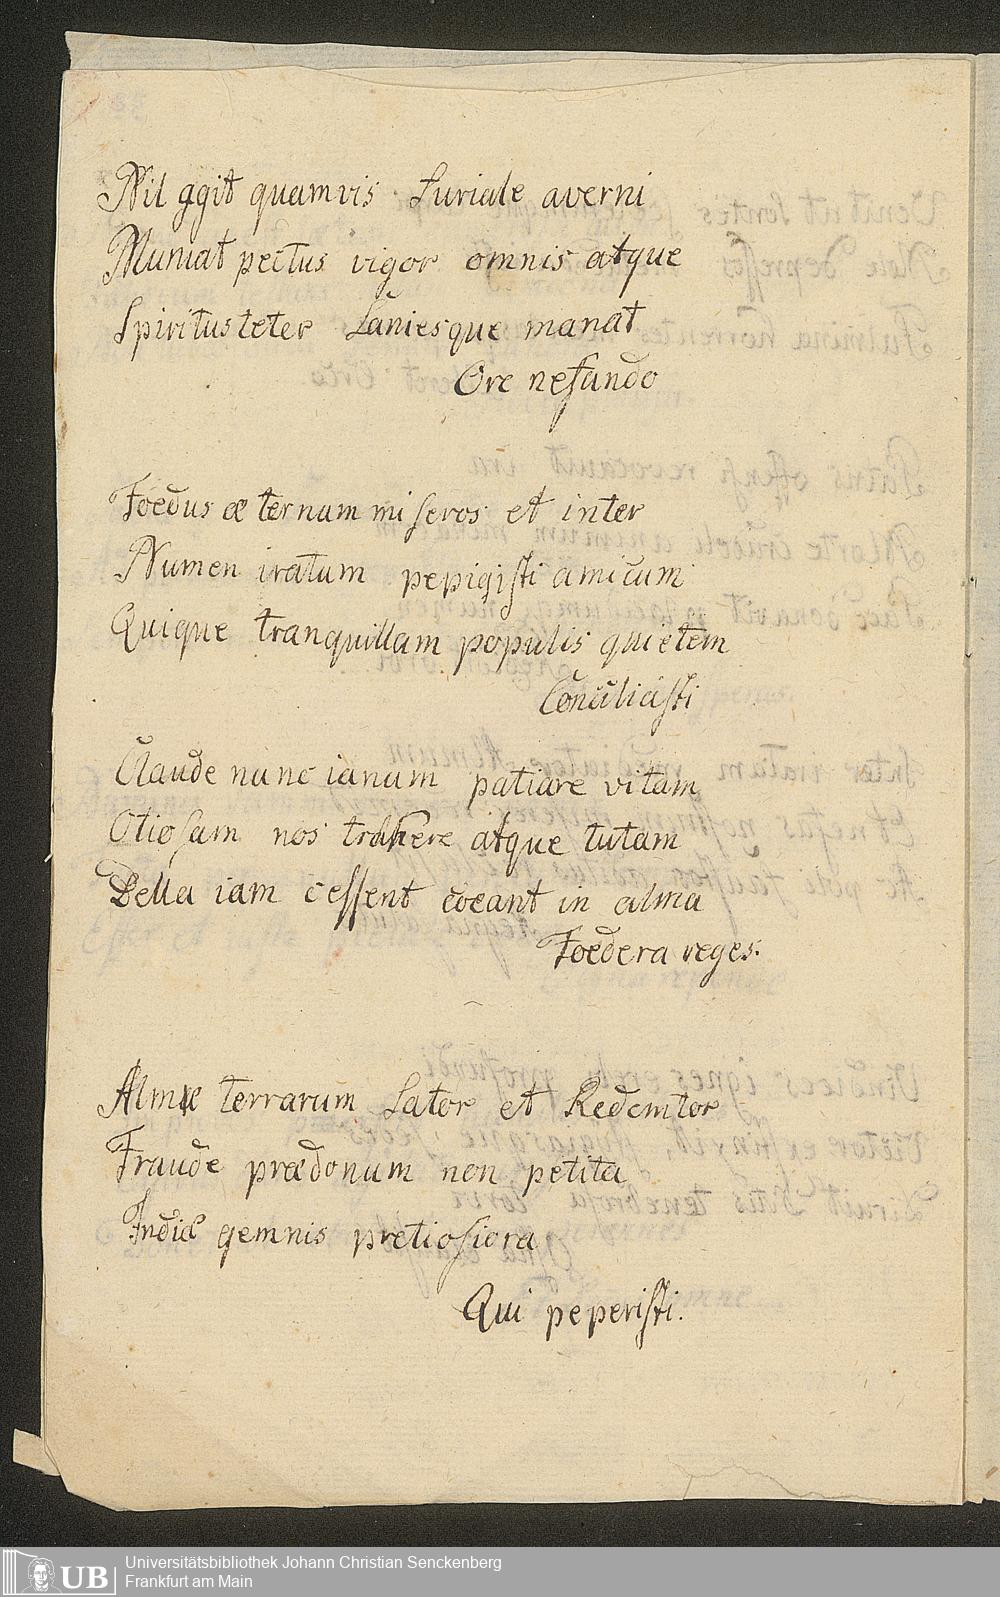 Nil agit quamvis furiale averni
Muniat pectus vigor omnis atque
Spiritus teter saniesque manat
Ore nefando
Foedus æternum miseros et inter
Numen iratum pepigisti amicum
Quique tranquillam populis quietem
Conciliasti
Claude nunc ianum patiare vitam
Otiosam nos trahere atque tutam
Bella iam cessent coeant in alma
Foedera reges.
Almæ terrarum sator et Redemtor
Fraude prædonum non petita
Indiæ gemnis pretiosiora
Qui peperisti.
UB
Universitätsbibliothek Johann Christian Senckenberg
Frankfurt am Main